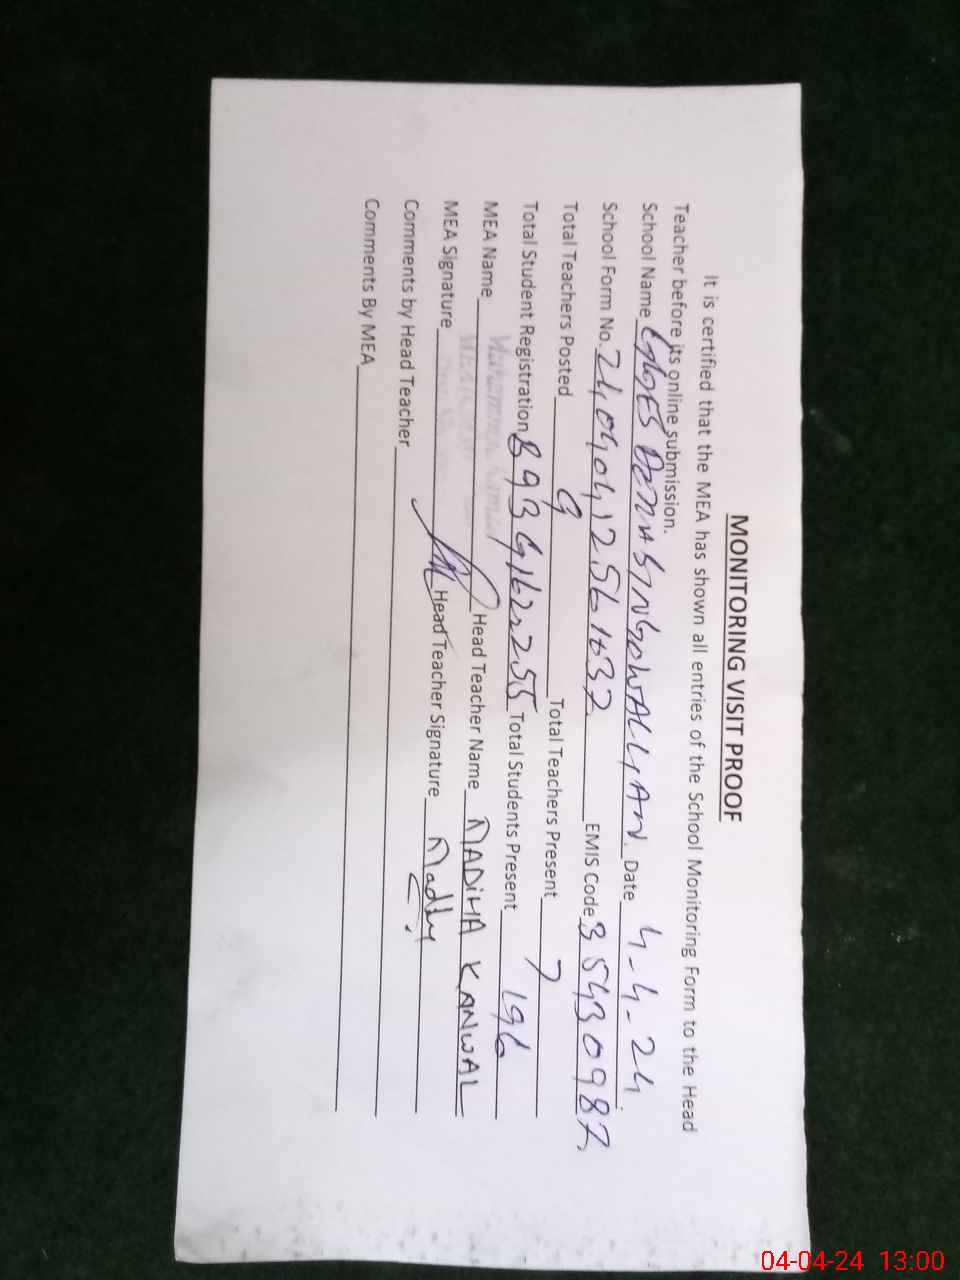 MONITORING VISIT PROOF
It is certified that the MEA has shown all entries of the School Monitoring Form to the Head
Teacher before its online submission.
School Name GGES DERA SINGOWALLIAN. Date 4-4-24.
School Form No. EMIS Code 35430987
Total Teachers Posted 9 Total Teachers Present 7
Total Student Registration Total Students Present 196
MEA Name Head Teacher Name MADIHA KANWAL
MEA Signature Head Teacher Signature
Comments by Head Teacher
Comments By MEA
04-04-24 13:00